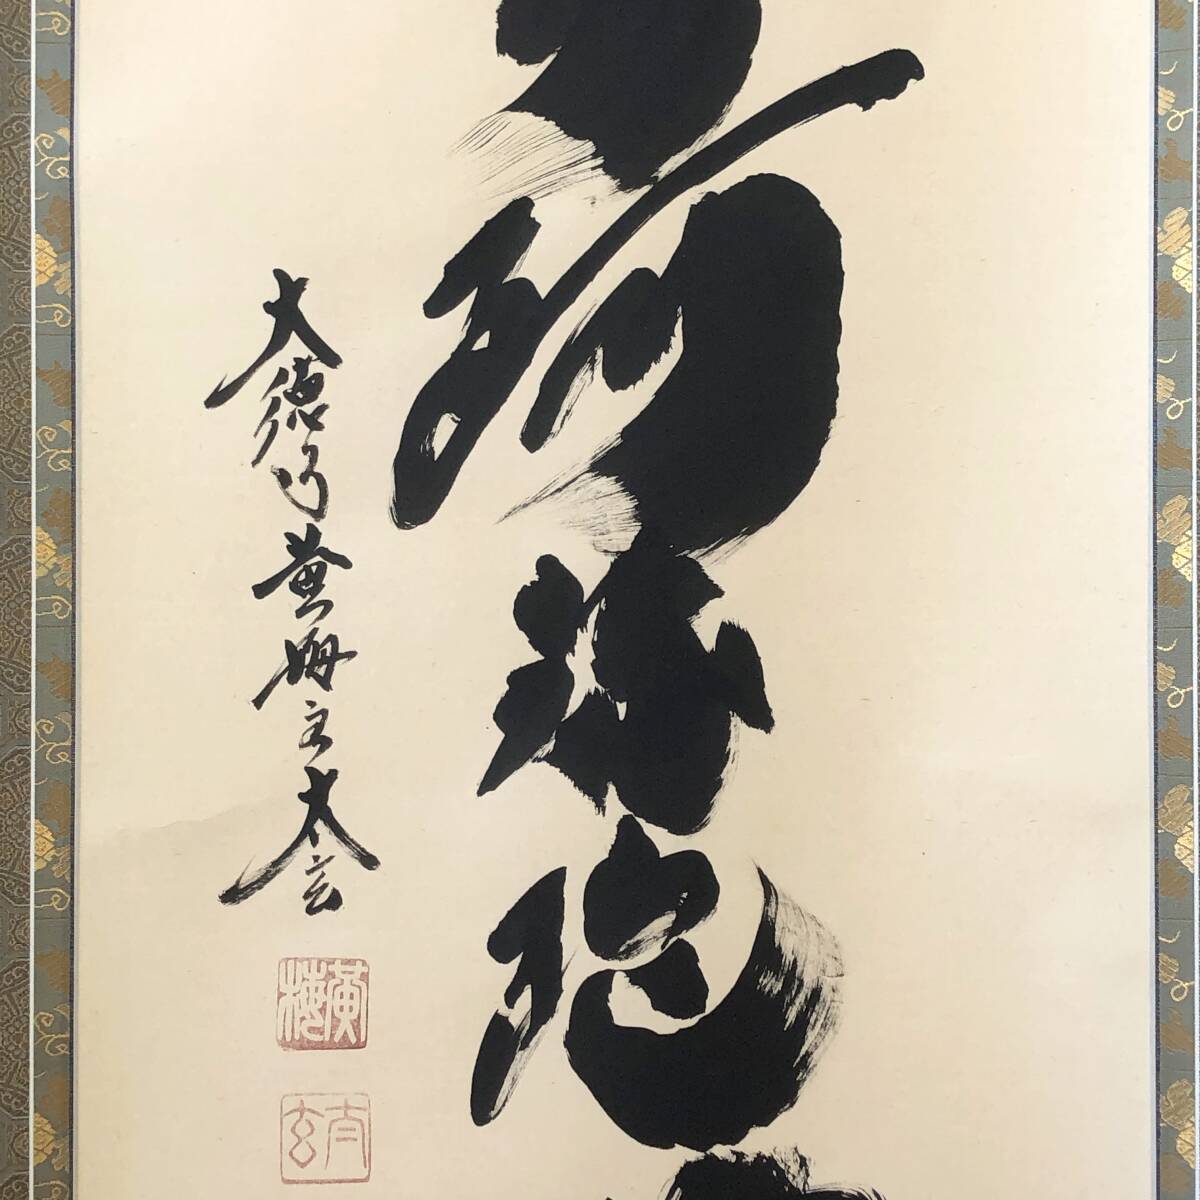 阿弥陀
大徳寺黄梅主太玄
黄梅
太玄